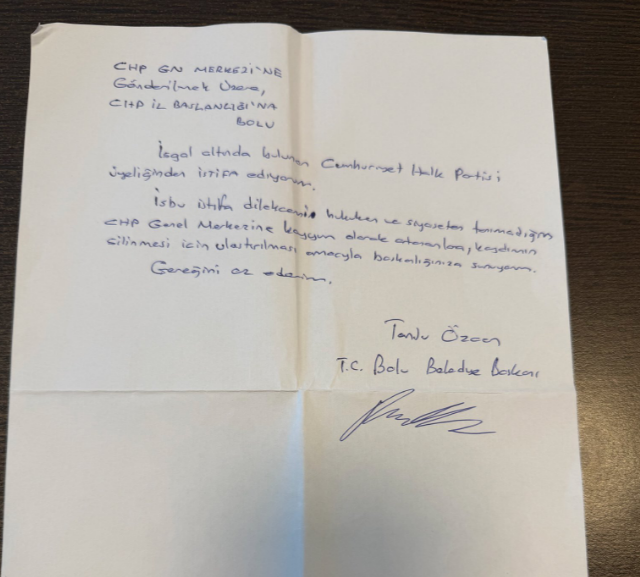 CHP GN MERKEZİ'NE
Gönderilmek Üzere,
CHP İL BAŞKANLIĞI'NA
BOLU
İşgal altında bulunan Cumhuriyet Halk Partisi
üyeliğinden istifa ediyorum.
İşbu istifa dilekçemi, hukuken ve siyaseten tanımadığım
CHP Genel Merkezine kayyum olarak atananlara, kaydımın
silinmesi için ulaştırılması amacıyla başkanlığınıza sunuyorum.
Gereğini arz ederim.
Tanju Özcan
T.C. Bolu Belediye Başkanı